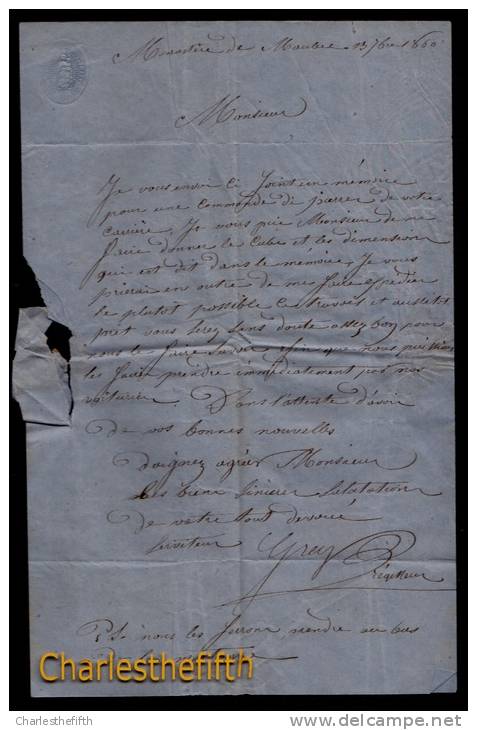 Monastère de Maubec 13 7bre 1860
Monsieur
Je vous envoi ci Joint un mémoire
pour une commande di pierres de votre
carrière. Je vous prie Monsieur de me
faire donner le cube et les dimension
qui est dit dans le mémoire, Je vous
prierai en outre de me faire expedier
le plutot possible ce travail et aussitot
pret vous serez sans doute assez bon pour
nous le faire savoir afin que nous puissions
les faire prendre immédiatement par nos
voiturier. Dans l'attente d'avoir
De vos bonnes nouvelles
Daignez agréer Monsieur
Les bien sincere Salutation
De votre tout dévoué
Serviteur Grey
Régisseur
P.S. nous les ferons prendre au bas
Charlesthefifth
Charlesthefifth
delcampe.net